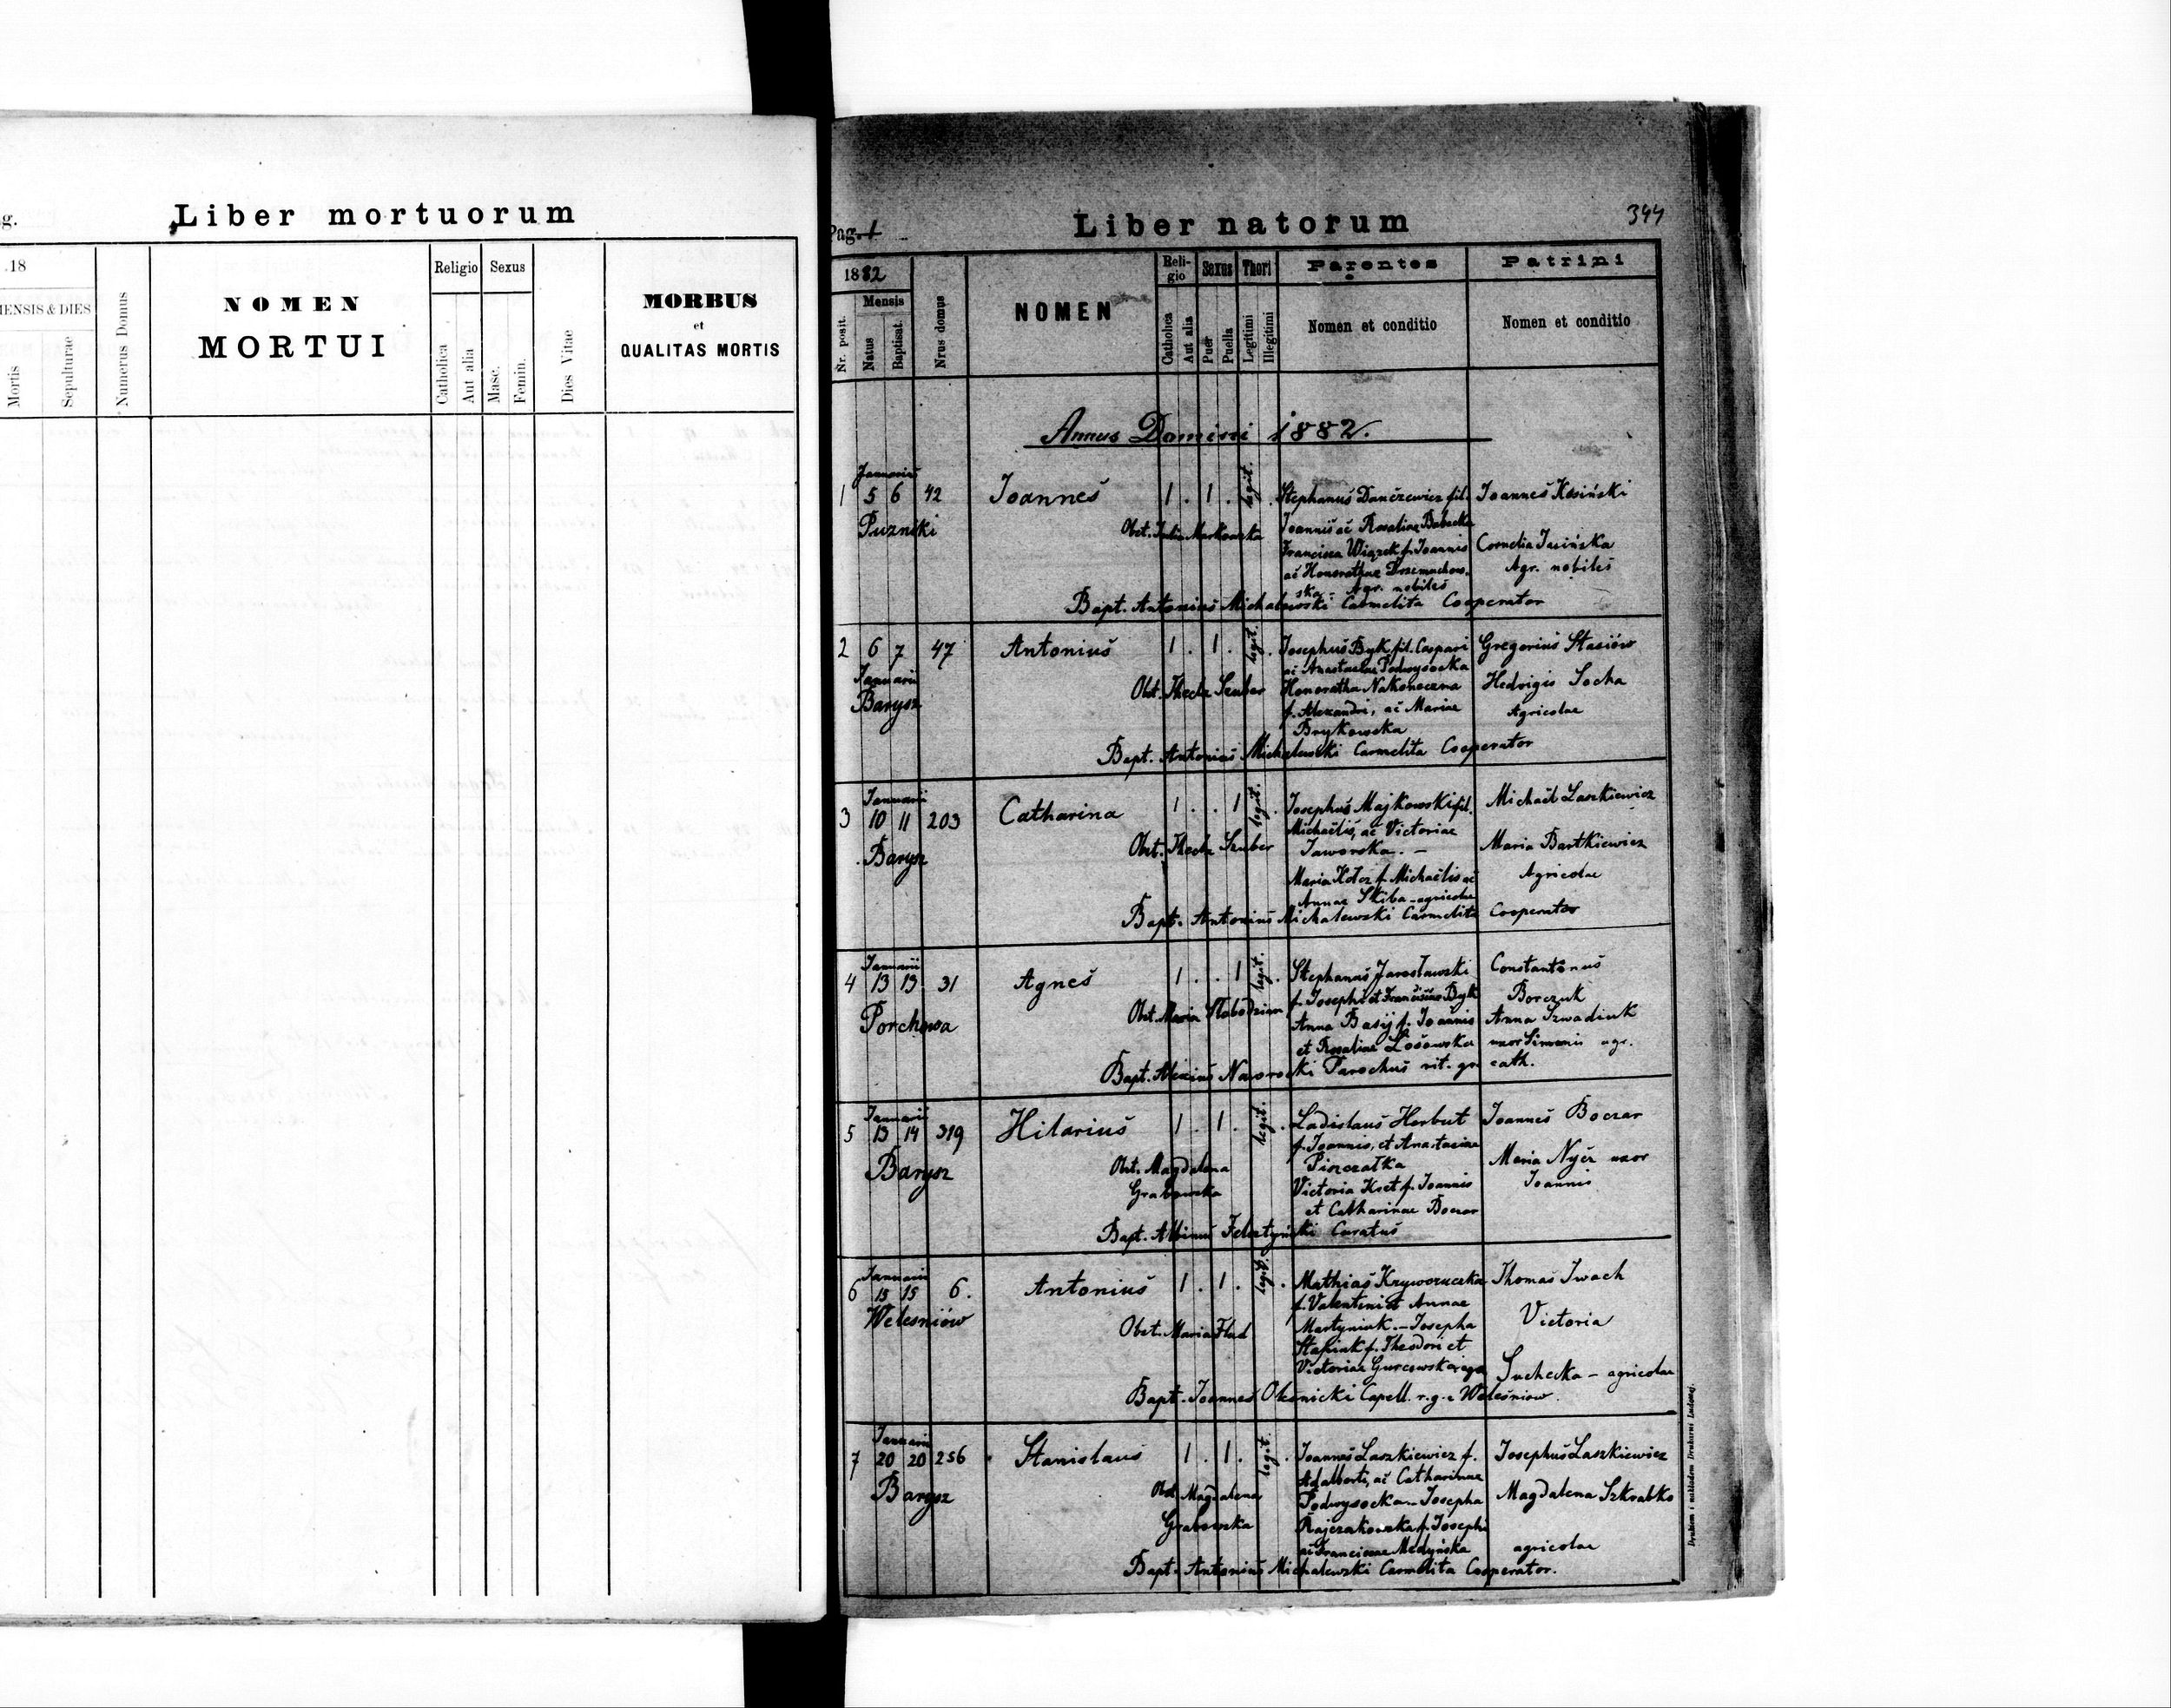 g.
Liber mortuorum
.18
MENSIS & DIES
Mortis
Sepulturae
Numerus Domus
NOMEN
MORTUI
Religio
Sexus
Catholica
Aut alia
Masc.
Femin.
Dies Vitae
MORBUS
et
QUALITAS MORTIS
Pag. 1
Liber natorum
344
1882
Mensis
Nr. posit.
Natus
Baptisat.
Nrus domus
NOMEN
Reli-
gio
Sexus
Thori
Catholica
Aut alia
Puer
Puella
Legitimi
Illegitimi
Parentes
Nomen et conditio
Patrini
Nomen et conditio
Annus Domini 1882.
Januarii
1 5 6 42 Joannes 1 . 1 . legit. . Stephanus Danczewicz fil. Joannes Kosiński
Puzniki Obst. Julia Markowska Joannis ac Rosaliae Babecka
Francisca Wiązek f. Joannis Cornelia Jasińska
ac Honorathae Drzemuchow- Agr. nobiles
ska - Agr. nobiles
Bapt. Antonius Michalewski Carmelita Cooperator
2 6 7 47 Antonius 1 . 1 . legit. . Josephus Byk fil. Caspari Gregorius Stasiów
Januarii ac Anastasiae Podwysocka
Barysz Obst. Thecla Szuber Honoratha Nakoneczna Hedvigis Socha
f. Alexandri, ac Mariae Agricolae
Brykowska
Bapt. Antonius Michalewski Carmelita Cooperator
Januarii
3 10 11 203 Catharina 1 . . 1 legit. . Josephus Majkowski fil. Michaël Laszkiewicz
Michaëlis, ac Victoriae
Barysz Obst. Thecla Szuber Jaworska. - Maria Bartkiewicz
Maria Kołcz f. Michaëlis ac Agricolae
Annae Skiba - agricolae
Bapt. Antonius Michalewski Carmelita Cooperator
Januarii
4 13 13 31 Agnes 1 . . 1 legit. . Stephanus Jarosławski Constantinus
f. Josephi et Franciscae Byk Borczuk
Porchowa Obst. Maria Anna Basij f. Joannis Anna Szwadiuk
et Rosaliae uxor Simeonis agr.
Bapt. Alexius Nawrocki Parochus rit. gr. cath.
Januarii
5 13 14 319 Hilarius 1 . 1 . legit. . Ladislaus Herbut Joannes Boczar
f. Joannis, et Anastasiae
Barysz Obst. Magdalena Piszczatka Maria Nycz uxor
Grabowska Victoria Kret f. Joannis Joannis
et Catharinae Boczar
Bapt. Albinus Felsztyński Curatus
Januarii
6 15 15 6. Antonius 1 . 1 . legit. . Mathias Kryworuczka Thomas Iwach
f. Valentini et Annae
Welesniów Obst. Maria Flud Martyniuk. - Josepha Victoria
f. Theodori et
Victoriae Suchecka - agricolae
Bapt. Joannes Capell. r. g. c. Welesniow.
Januarii
7 20 20 256 Stanislaus 1 . 1 . legit. . Joannes Laszkiewicz f. Josephus Laszkiewicz
Adalberti, ac Catharinae
Barysz Obst. Magdalena Podwysocka - Josepha Magdalena Szkrabko
Grabowska Rajczakowska f. Josephi
ac Franciscae Medyńska agricolae
Bapt. Antonius Michalewski Carmelita Cooperator.
Drukiem i nakładem Drukarni Ludowej.